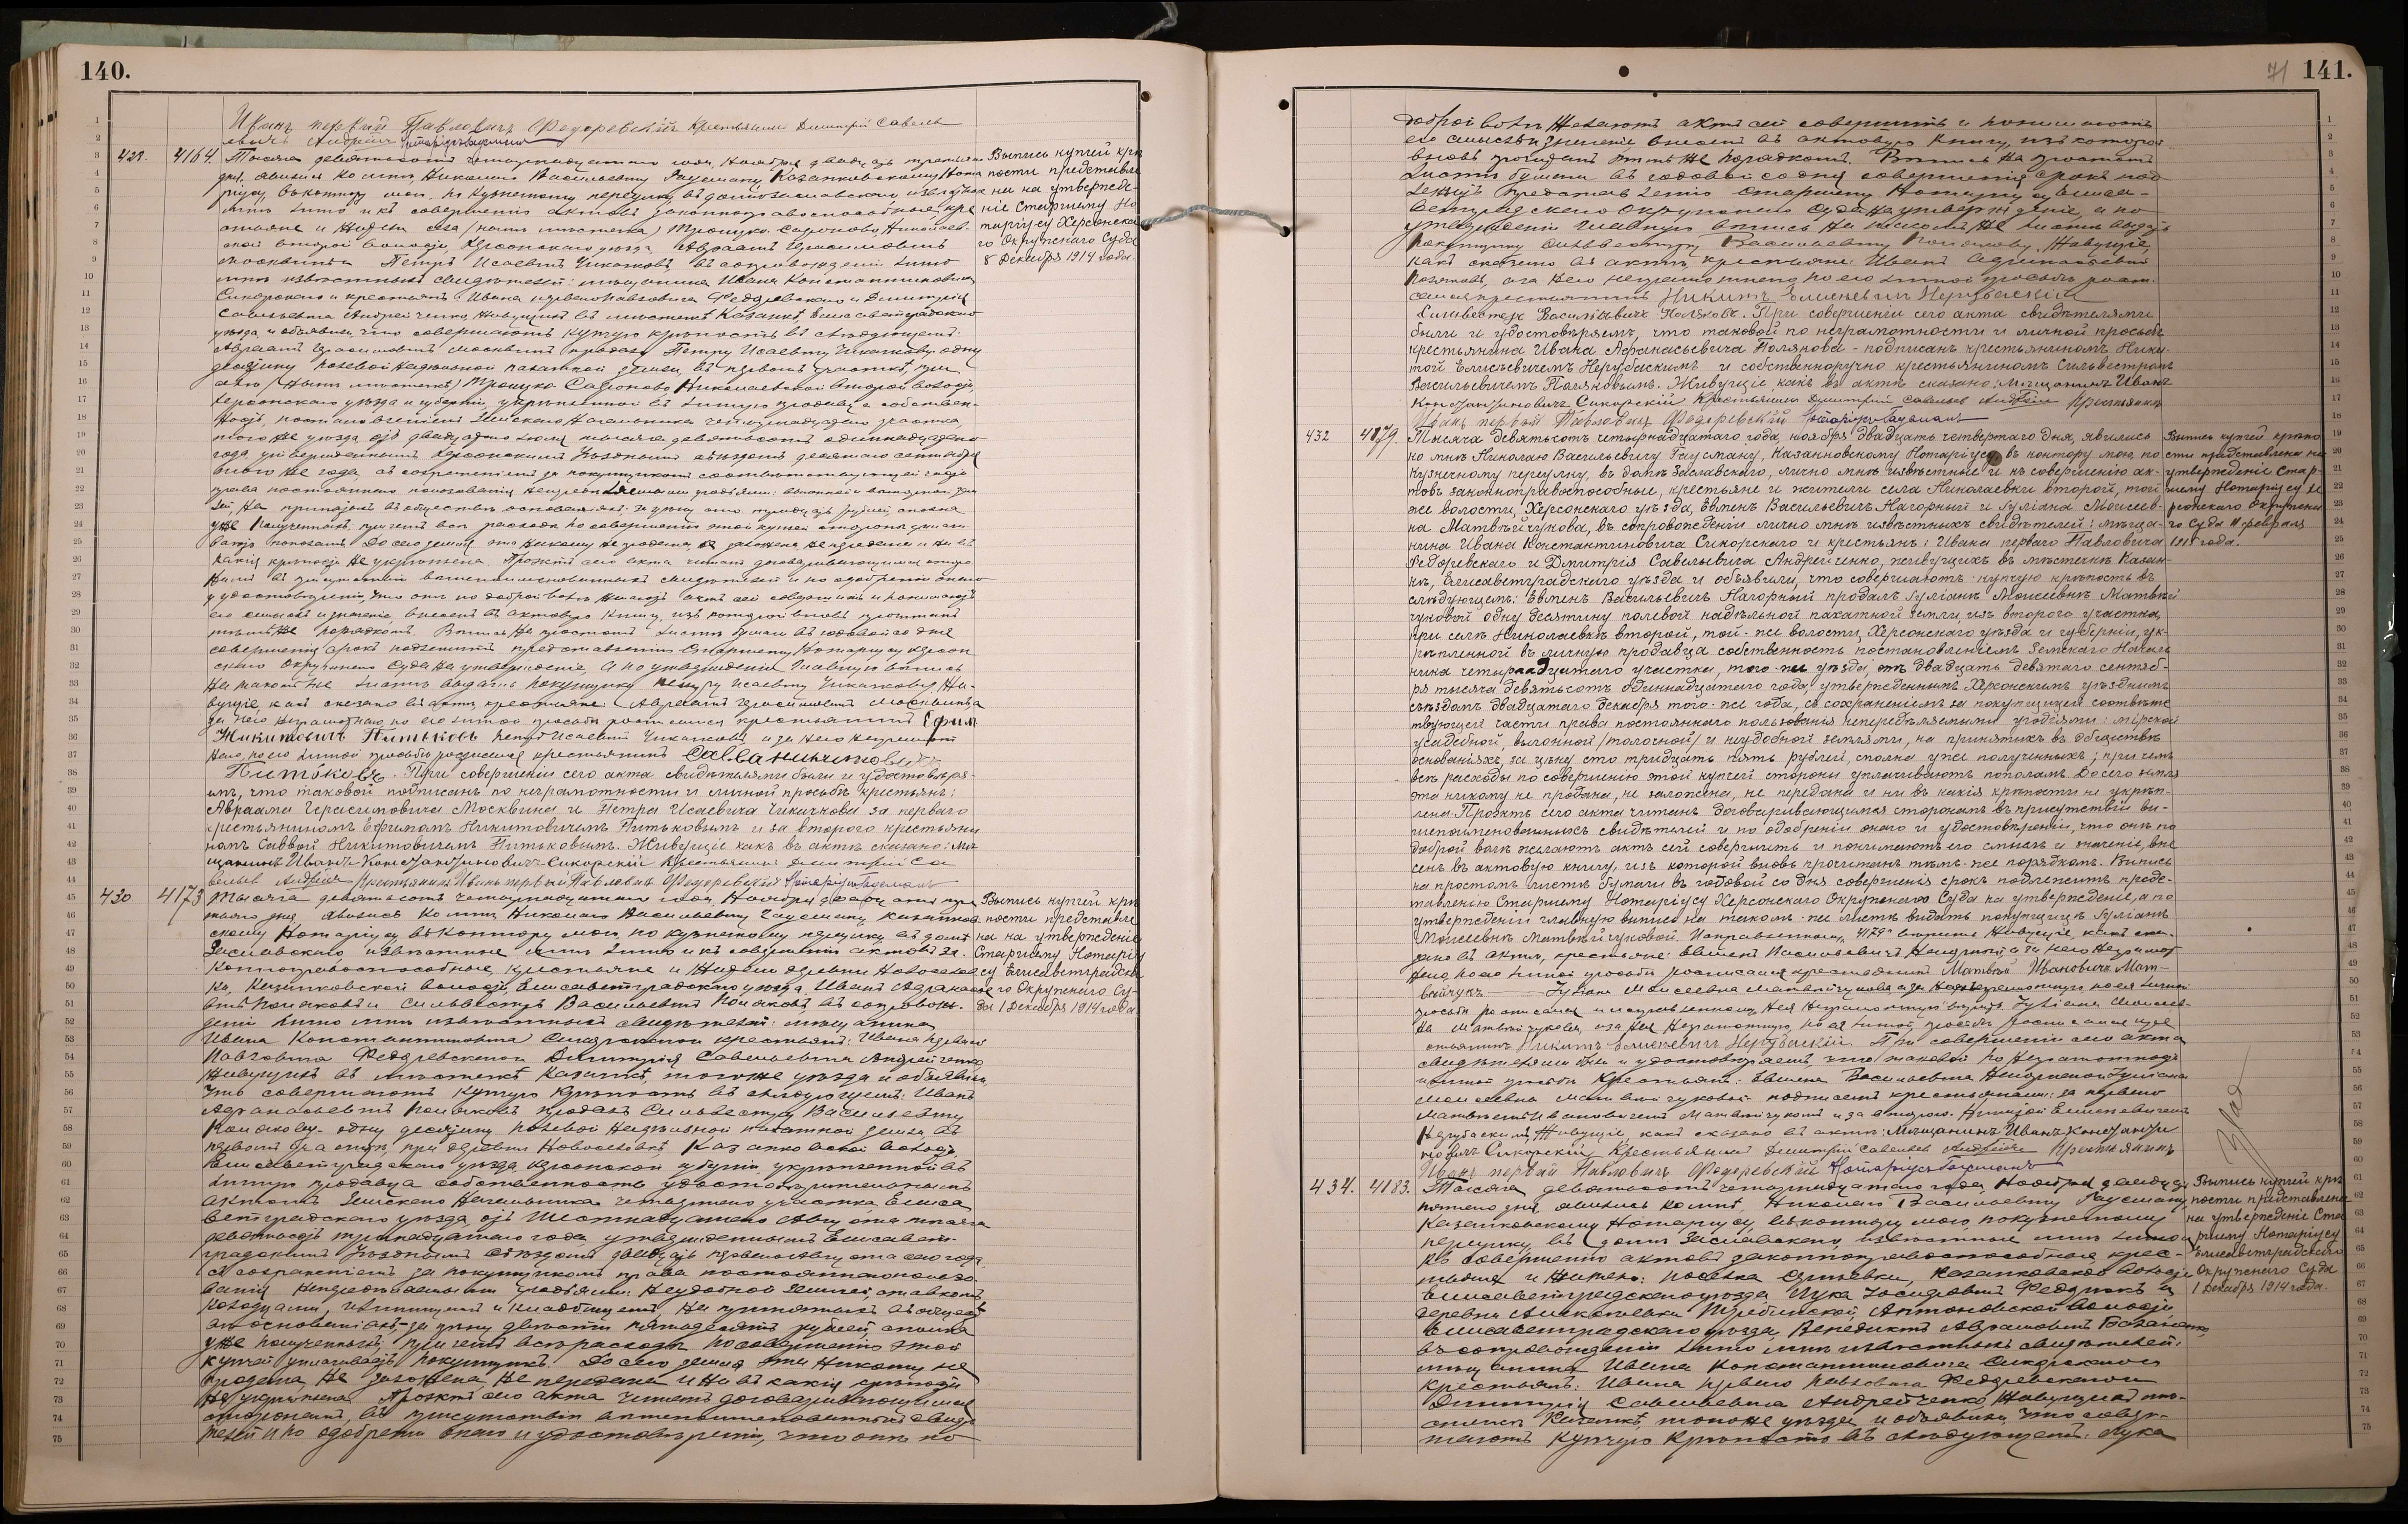 140.
Иванъ первый Павловичъ Федоревскій Крестьянинъ Дмитрій Савель
евичъ Андрейч Нотаріусъ Гаусманъ
428. 4164 Тысяча девятьсотъ четырнадцатаго года, Ноября двадцать третьяго
дня, явились ко мнѣ, Николаю Васильевичу Гаусману, Казанковскому Нота
ріусу, въ контору мою, по Кузнечному переулку, въ домѣ Заславскаго извѣстные
мнѣ лично и къ совершенію актовъ законноправоспособные, кре
стьяне и жители села (нынѣ мѣстечка) Троицко-Сафоново, Николаев
ской второй волости Херсонскаго уѣзда, Авраамъ Герасимовичъ
Москвинъ и Петръ Исаевичъ Чикачковъ въ сопровожденіи лично
мнѣ извѣстныхъ свидѣтелей: мѣщанина Ивана Константиновича
Сикорскаго и крестьянъ: Ивана перваго Павловича Федоревскаго и Дмитрія
Савельевича Андрейченко, живущихъ въ мѣстечкѣ Казанкѣ, Елисаветградскаго
уѣзда и объявили, что совершаютъ купчую крѣпость въ слѣдующемъ:
Авраамъ Герасимовичъ Москвинъ продалъ Петру Исаевичу Чикачкову одну
десятину полевой надѣльной пахатной земли, въ первомъ участкѣ, при
селѣ (нынѣ мѣстечкѣ) Троицко-Сафоново, Николаевской второй волости,
Херсонскаго уѣзда и губерніи, укрѣпленной въ личную продавца собствен-
ность, постановленіемъ Земскаго Начальника четырнадцатаго участка,
того же уѣзда, отъ двадцатаго іюля тысяча девятьсотъ одиннадцатаго
года, утвержденнымъ Херсонскимъ Уѣзднымъ съѣздомъ десятаго сентября
того же года, съ сохраненіемъ за покупщикомъ соотвѣтствующей части
права постояннаго пользованія
уже полученныхъ, причемъ всѣ расходы по совершенію этой купчей стороны уплачи
ваютъ пополамъ. До сего земля эта никому не продана, не заложена, не передана и ни въ
какія крѣпости не укрѣплена. Проэктъ сего акта читанъ договаривающимся сторо
намъ въ присутствіи вышепоименованныхъ свидѣтелей и по одобреніи онаго
и удостовѣреніи, что они по доброй волѣ желаютъ актъ сей совершить и понимаютъ
его смыслъ и значеніе, внесенъ въ актовую книгу, изъ которой вновь прочитанъ
тѣмъ же порядкомъ. Выпись на простомъ листѣ бумаги въ годовой со дня
совершенія срокъ подлежитъ представленію Старшему Нотаріусу Херсон
скаго Окружнаго Суда на утвержденіе, а по утвержденіи главную выпись
на такомъ же листѣ выдать покупщику Петру Исаевичу Чикачкову. Жи-
вущіе, какъ сказано въ актѣ, крестьяне: Авраамъ Герасимовичъ Москвинъ, а
за него неграмотнаго, по его личной просьбѣ росписался крестьянинъ Ефимъ
Никитовичъ Питьковъ Петръ Исаевичъ Чикачковъ, а за него неграмот
наго, по его личной просьбѣ росписался крестьянинъ Савва Никитовичъ
Питьковъ. При совершеніи сего акта свидѣтелями были и удостовѣря-
емъ, что таковой подписанъ по неграмотности и личной просьбѣ крестьянъ:
Авраама Герасимовича Москвина и Петра Исаевича Чикачкова за перваго
крестьяниномъ Ефимомъ Никитовичемъ Питьковымъ и за второго крестьяни
номъ Саввой Никитовичемъ Питьковымъ. Живущіе какъ въ актѣ сказано: Мѣ
щанинъ Иванъ Константиновичъ Сикорскій Крестьянинъ Дмитрій Са
вельев Андрейч Крестьянинъ Иванъ первый Павловичъ Федоревскій Нотаріусъ Гаусманъ
Выпись купчей крѣ
пости представле
на на утвержде-
ніе Старшему Но
таріусу Херсонска
го Окружнаго Суда
8 Декабря 1914 года.
430 4173 Тысяча девятьсотъ четырнадцатаго года, Ноября двадцать тре
тьяго дня, явились ко мнѣ, Николаю Васильевичу Гаусману, Казанков
скому Нотаріусу, въ контору мою, по Кузнечному переулку, въ домѣ
Заславскаго, извѣстные мнѣ лично и къ совершенію актовъ за-
конноправоспособные, крестьяне и жители деревни Новоселов
ки, Казанковской волости, Елисаветградскаго уѣзда, Иванъ Афанасье
вичъ Поляковъ и Сильвестръ Васильевичъ Поляковъ, въ сопровож-
деніи лично мнѣ извѣстныхъ свидѣтелей: мѣщанина
Ивана Константиновича Сикорскаго и крестьянъ: Ивана перваго
Павловича Федоревскаго и Дмитрія Савельевича Андрейченко
живущихъ въ мѣстечкѣ Казанкѣ, того же уѣзда и объявили,
что совершаютъ купчую крѣпость въ слѣдующемъ: Иванъ
Афанасьевичъ Поляковъ продалъ Сильвестру Васильевичу
Полякову одну десятину полевой надѣльной пахатной земли, въ
первомъ участкѣ, при деревни Новоселовкѣ, Казанковской волости,
Елисаветградскаго уѣзда, Херсонской губерніи, укрѣпленной въ
личную продавца собственность удостовѣрительнымъ
актомъ Земскаго Начальника четвертаго участка, Елиса
ветградскаго уѣзда, отъ шестнадцатаго Августа тысяча
девятьсотъ тринадцатаго года, утвержденнымъ Елисавет-
градскимъ Уѣзднымъ Съѣздомъ двадцать перваго Августа сего года,
съ сохраненіемъ за покупщикомъ права постояннаго пользо-
ванія
основаніяхъ, за цѣну двѣсти пятьдесятъ рублей, сполна
уже полученныхъ; причемъ всѣ расходы по совершенію этой
купчей уплачиваетъ покупщикъ. До сего земля эта никому не
продана, не заложена, не передана и ни въ какія крѣпости
не укрѣплена. Проэктъ сего акта читанъ договаривающимся
сторонамъ, въ присутствіи вышепоименованныхъ свидѣ
телей и по одобреніи онаго и удостовѣреніи, что они по
Выпись купчей крѣ
пости представле
на на утвержденіе
Старшему Нотаріу
су Елисаветградска
го Окружнаго Су-
да 1 Декабря 1914 года.
71 141.
доброй волѣ желаютъ актъ сей совершить и понимаютъ
его смыслъ и значеніе внесенъ въ актовую книгу, изъ которой
вновь прочитанъ тѣмъ же порядкомъ. Выпись на простомъ
листѣ бумаги въ годовой со дня совершенія срокъ под
лежитъ представленію Старшему Нотаріусу Елиса-
ветградскаго Окружнаго Суда на утвержденіе, а по
утвержденіи главную выпись на такомъ же листѣ выдать
покупщику Сильвестру Васильевичу Полякову. Живущіе,
какъ сказано въ актѣ, крестьяне: Иванъ Афанасьевичъ
Поляковъ, а за него неграмотнаго, по его личной просьбѣ роспи-
сался крестьянинъ Никита Елисеевичъ Нерубаскій
Сильвестръ Васильевичъ Поляковъ. При совершеніи сего акта свидѣтелями
были и удостовѣряемъ, что таковой по неграмотности и личной просьбѣ
крестьянина Ивана Афанасьевича Полякова - подписанъ крестьяниномъ Ники-
той Елисѣевичемъ Нерубаскимъ и собственноручно крестьяниномъ Сильвестромъ
Васильевичемъ Поляковымъ. Живущіе, какъ въ актѣ сказано: Мѣщанинъ Иванъ
Константиновичъ Сикорскій Крестьянинъ Дмитрій Савельев Андрейч Крестьянинъ
Иванъ первый Павловичъ Федоревскій Нотаріусъ Гаусманъ
432 4179. Тысяча девятьсотъ четырнадцатаго года, ноября двадцать четвертаго дня, явились
ко мнѣ Николаю Васильевичу Гаусману, Казанковскому Нотаріусу, въ контору мою, по
Кузнечному переулку, въ домѣ Заславскаго, лично мнѣ извѣстные и къ совершенію ак-
товъ законноправоспособные, крестьяне и жители села Николаевки второй, той
же волости, Херсонскаго уѣзда, Евменъ Васильевичъ Нагорный и Гуліана Моисеев-
на Матвѣйчукова, въ сопровожденіи лично мнѣ извѣстныхъ свидѣтелей: мѣща-
нина Ивана Константиновича Сикорскаго и крестьянъ: Ивана перваго Павловича
Федоревскаго и Дмитрія Савельевича Андрейченко, живущихъ въ мѣстечкѣ Казан-
кѣ, Елисаветградскаго уѣзда и объявили, что совершаютъ купчую крѣпость въ
слѣдующемъ: Евменъ Васильевичъ Нагорный продалъ Гуліанѣ Моисеевнѣ Матвѣй
чуковой одну десятину полевой надѣльной пахатной земли, изъ второго участка,
при селѣ Николаевкѣ второй, той же волости, Херсонскаго уѣзда и губерніи, ук-
рѣпленной въ личную продавца собственность постановленіемъ Земскаго Началь
ника четырнадцатаго участка, того же уѣзда, отъ двадцать девятаго сентяб-
ря тысяча девятьсотъ одиннадцатаго года, утвержденнымъ Херсонскимъ уѣзднымъ
съѣздомъ двадцатаго декабря того же года, съ сохраненіемъ за покупщицей соотвѣтс
твующей части права постояннаго пользованія непередѣляемыми угодіями: мірской
усадебной, выгонной /толочной/ и неудобной землями, на принятыхъ въ обществѣ
основаніяхъ, за цѣну сто тридцать пять рублей, сполна уже полученныхъ; при чемъ
всѣ расходы по совершенію этой купчей стороны уплачиваютъ пополамъ. До сего земля
эта никому не продана, не заложена, не передана и ни въ какія крѣпости не укрѣп-
лена. Проэктъ сего акта читанъ договаривающимся сторонамъ въ присутствіи вы-
шепоименованныхъ свидѣтелей и по одобреніи онаго и удостовѣреніи, что они по
доброй волѣ желаютъ актъ сей совершить и понимаютъ его смыслъ и значеніе, вне
сенъ въ актовую книгу, изъ которой вновь прочитанъ тѣмъ же порядкомъ. Выпись
на простомъ листѣ бумаги въ годовой со дня совершенія срокъ подлежитъ предс-
тавленію Старшему Нотаріусу Херсонскаго Окружнаго Суда на утвержденіе, а по
утвержденіи главную выпись на такомъ же листѣ выдать покупщицѣ Гуліанѣ
Моисеевнѣ Матвѣйчуковой. Исправленному "4179" вѣрить. Живущіе, какъ ска-
зано въ актѣ, крестьяне: Евменъ Васильевичъ Нагорный, а за него неграмот
наго, по его личной просьбѣ росписался крестьянинъ Матвѣй Ивановичъ Мат-
вѣйчукъ Гуліана Моисеевна Матвѣйчукова
на Матвѣйчукова, а за нея неграмотную, по ея личной просьбѣ росписался кре
стьянинъ Никита Елисеевичъ Нерубаскій. При совершеніи сего акта
свидѣтелями были и удостовѣряемъ, что таковой по неграмотности
и личной просьбѣ крестьянъ: Евмена Васильевича Нагорнаго и Гуліаны
Моисеевны Матвѣйчуковой подписанъ крестьянами: за перваго
Матвѣемъ Ивановичемъ Матвѣйчукомъ и за второго Никитой Елисеевичемъ
Нерубаскимъ. Живущіе, какъ сказано въ актѣ: Мѣщанинъ Иванъ Константи
новичъ Сикорскій Крестьянинъ Дмитрій Савельев Андрейч Крестьянинъ
Иванъ первый Павловичъ Федоревскій Нотаріусъ Гаусманъ
Выпись купчей крѣпо
сти представлена на
утвержденіе Стар-
шему Нотаріусу Хе
рсонскаго Окружна
го Суда 11 февраля
1915 года.
434. 4183. Тысяча девятьсотъ четырнадцатаго года, Ноября двадцать
пятаго дня, явились ко мнѣ, Николаю Васильевичу Гаусману,
Казанковскому Нотаріусу, въ контору мою, по Кузнечному
переулку, въ домѣ Заславскаго, извѣстные мнѣ лично и
къ совершенію актовъ законноправоспособные, крес-
тьяне и жители: поселка
Елисаветградскаго уѣзда Лука
деревни
Елисаветградскаго уѣзда, Венедиктъ Авраамовичъ
въ сопровожденіи лично мнѣ извѣстныхъ свидѣтелей:
мѣщанина Ивана Константиновича Сикорскаго и
крестьянъ: Ивана перваго Павловича Федоревскаго и
Дмитрія Савельевича Андрейченко, живущихъ въ мѣ-
стечкѣ Казанкѣ, того же уѣзда и объявили, что совер-
шаютъ купчую крѣпость въ слѣдующемъ: Лука
Выпись купчей крѣ
пости представлена
на утвержденіе Стар
шему Нотаріусу
Елисаветградскаго
Окружнаго Суда
1 Декабря 1914 года.